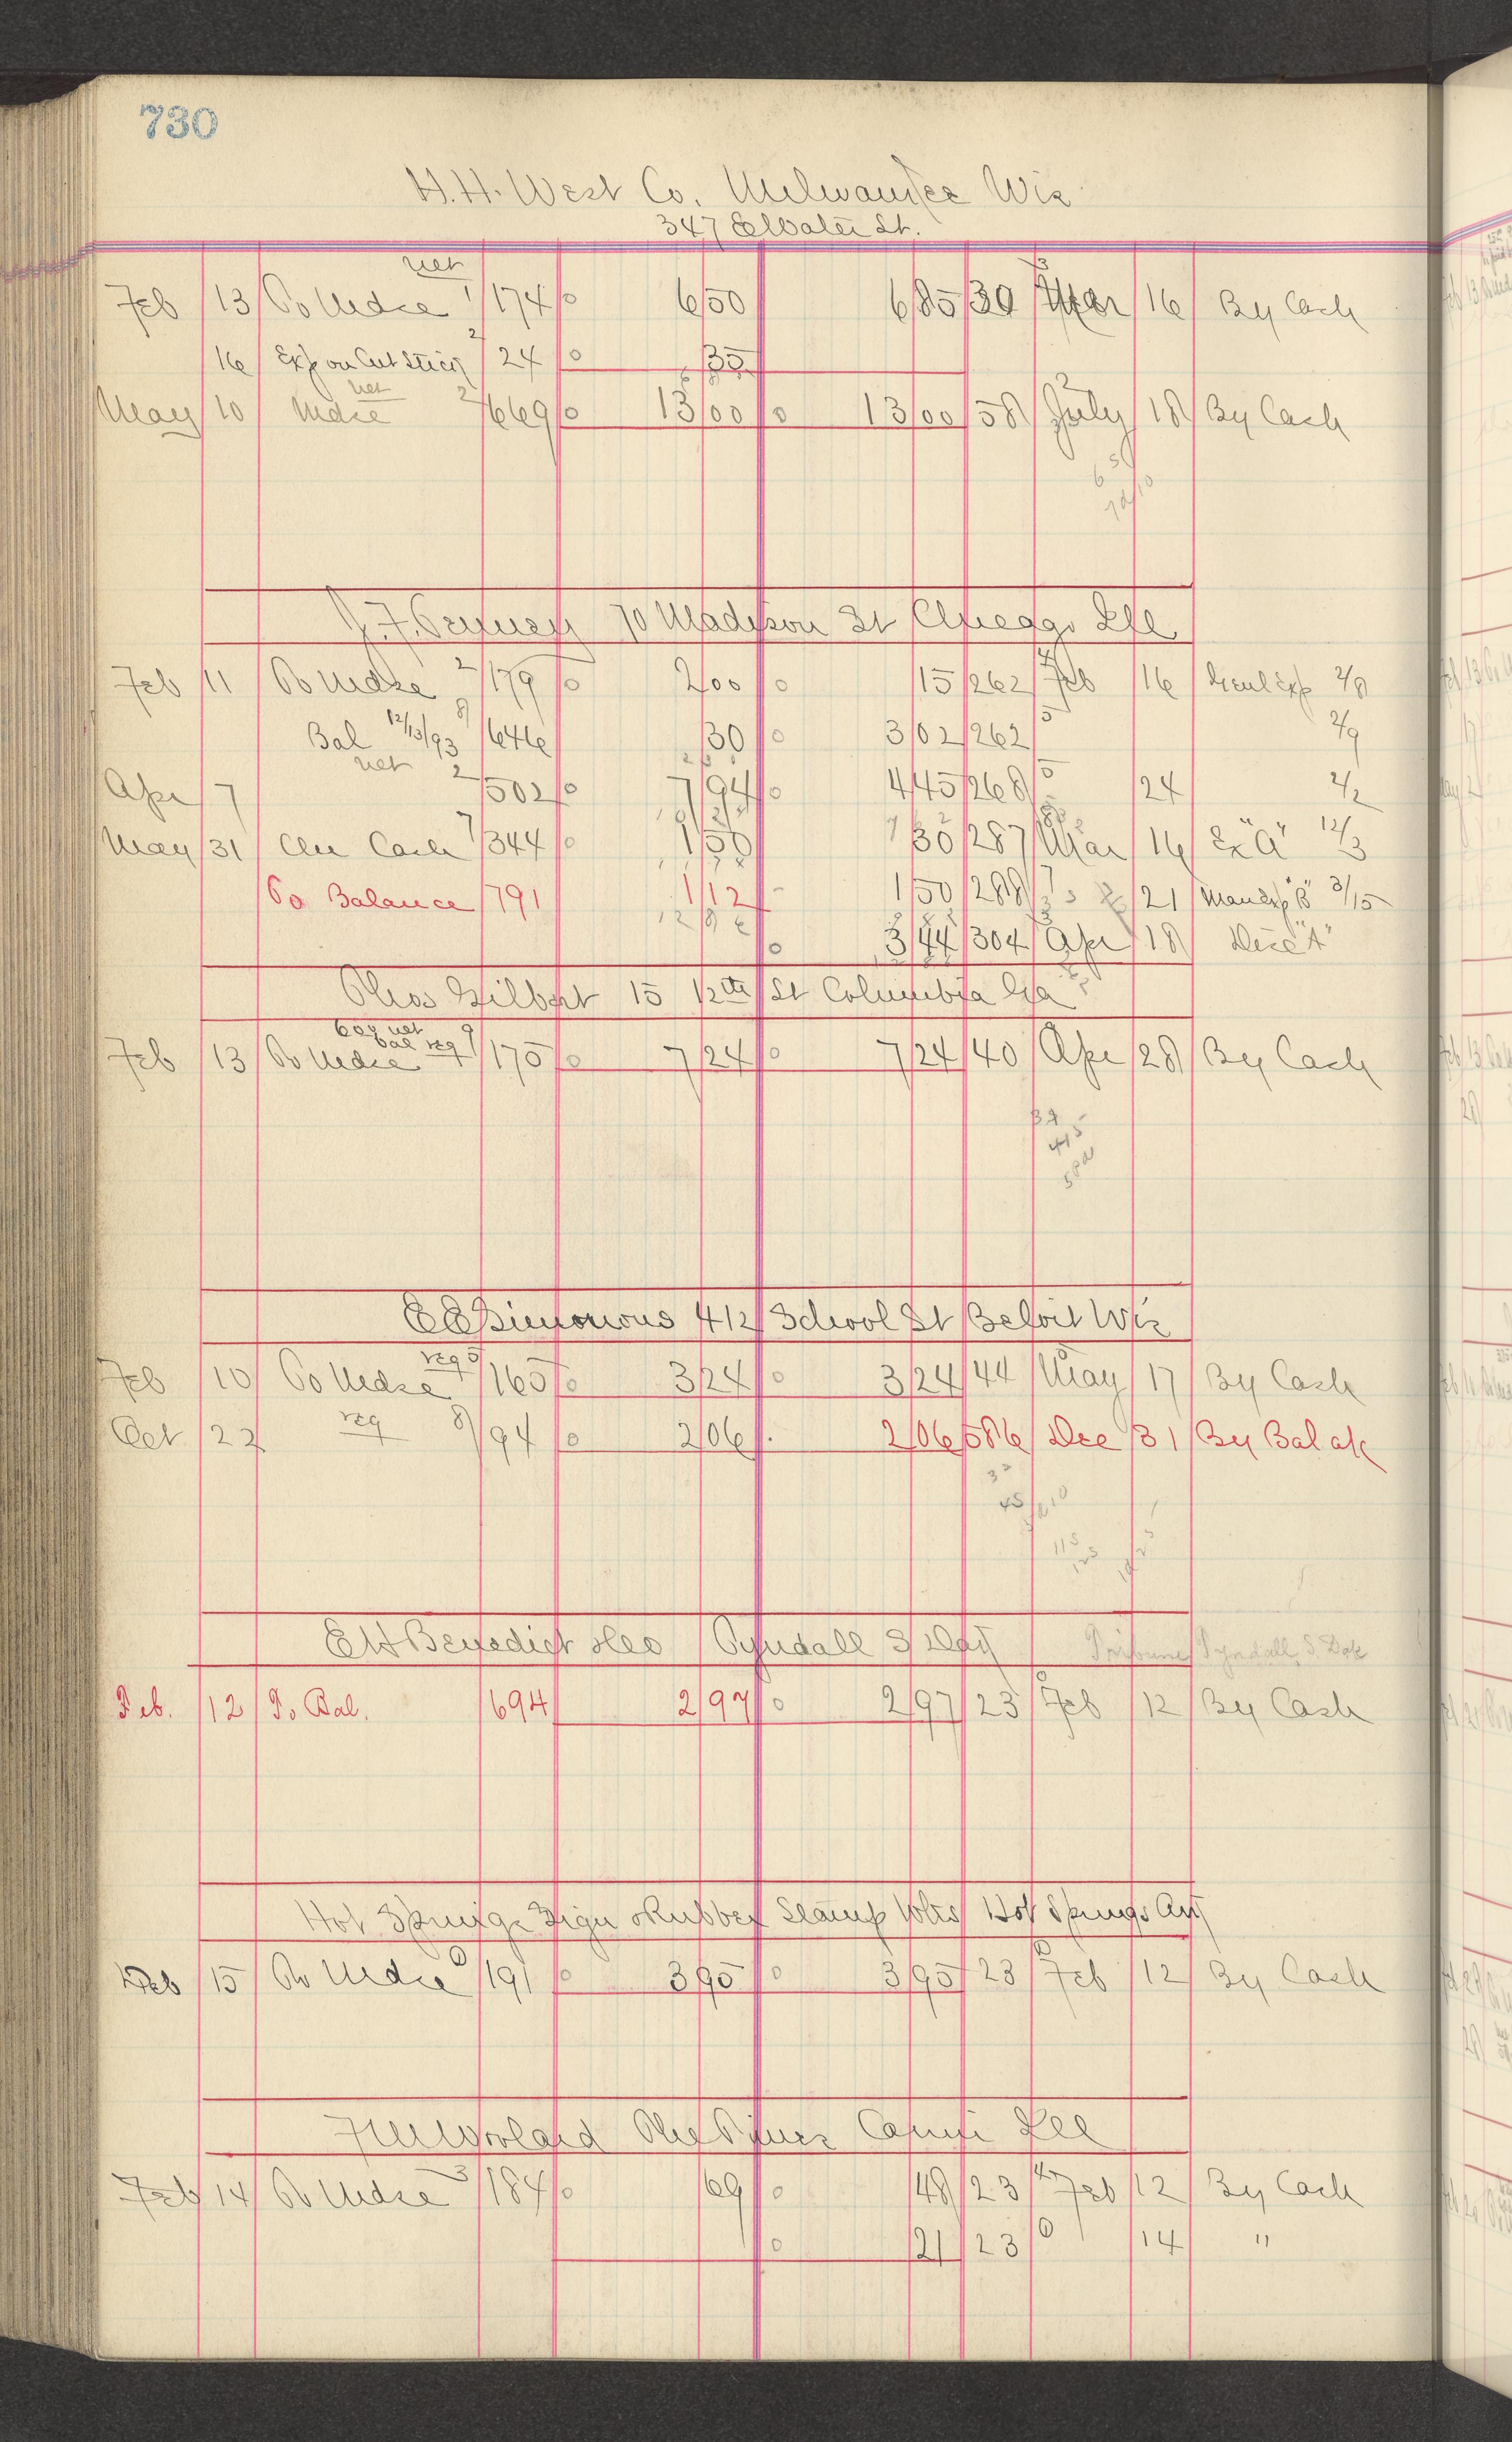 730
H. H. West Co. Milwaukee Wis
347 E Water St.
net
Feb 13 To Mdse 1 174 6 50 6 85 30 3 Mar 16 By Cash
16 Exp on Cut Stick 2 24 35
net
May 10 Mdse 2 669 13 00 13 00 58 2 July 18 By Cash
70 Madison St Chicago Ill
Feb 11 To Mdse 2 179 2 00 15 262 4 Feb 16 2/8
Bal 12/13/93 8 646 30 3 02 262 5 2/9
net
Apr 7 2 502 7 94 4 45 268 5 24 2/2
May 31 Cash 7 344 1 50 30 287 Mar 16 Ex "A" 12/3
To Balance 791 1 12 1 50 288 21 "B" 3/15
12 86
3 44 304 Apr 18 "A"
Chas Gilbert 15 12th St Columbia Ga
bal reg 9
Feb 13 To Mdse 175 7 24 7 24 40 Apr 28 By Cash
E E Simmons 412 School St Beloit Wis
reg 5
Feb 10 To Mdse 165 3 24 3 24 44 May 17 By Cash
Oct 22 reg 8 94 2 06 2 06 586 Dec 31 By Bal a/c
E W Benedict Tyndall S Dak Tribune Tyndall, S. Dak
Feb. 12 To Bal. 694 2 97 2 97 23 Feb 12 By Cash
Hot Springs Sign & Rubber Stamp Wks Hot Springs Ark
Feb 15 To Mdse 191 3 95 3 95 23 Feb 12 By Cash
The Times Carmi Ill
Feb 14 To Mdse 3 184 69 48 23 4 Feb 12 By Cash
21 23 14 "